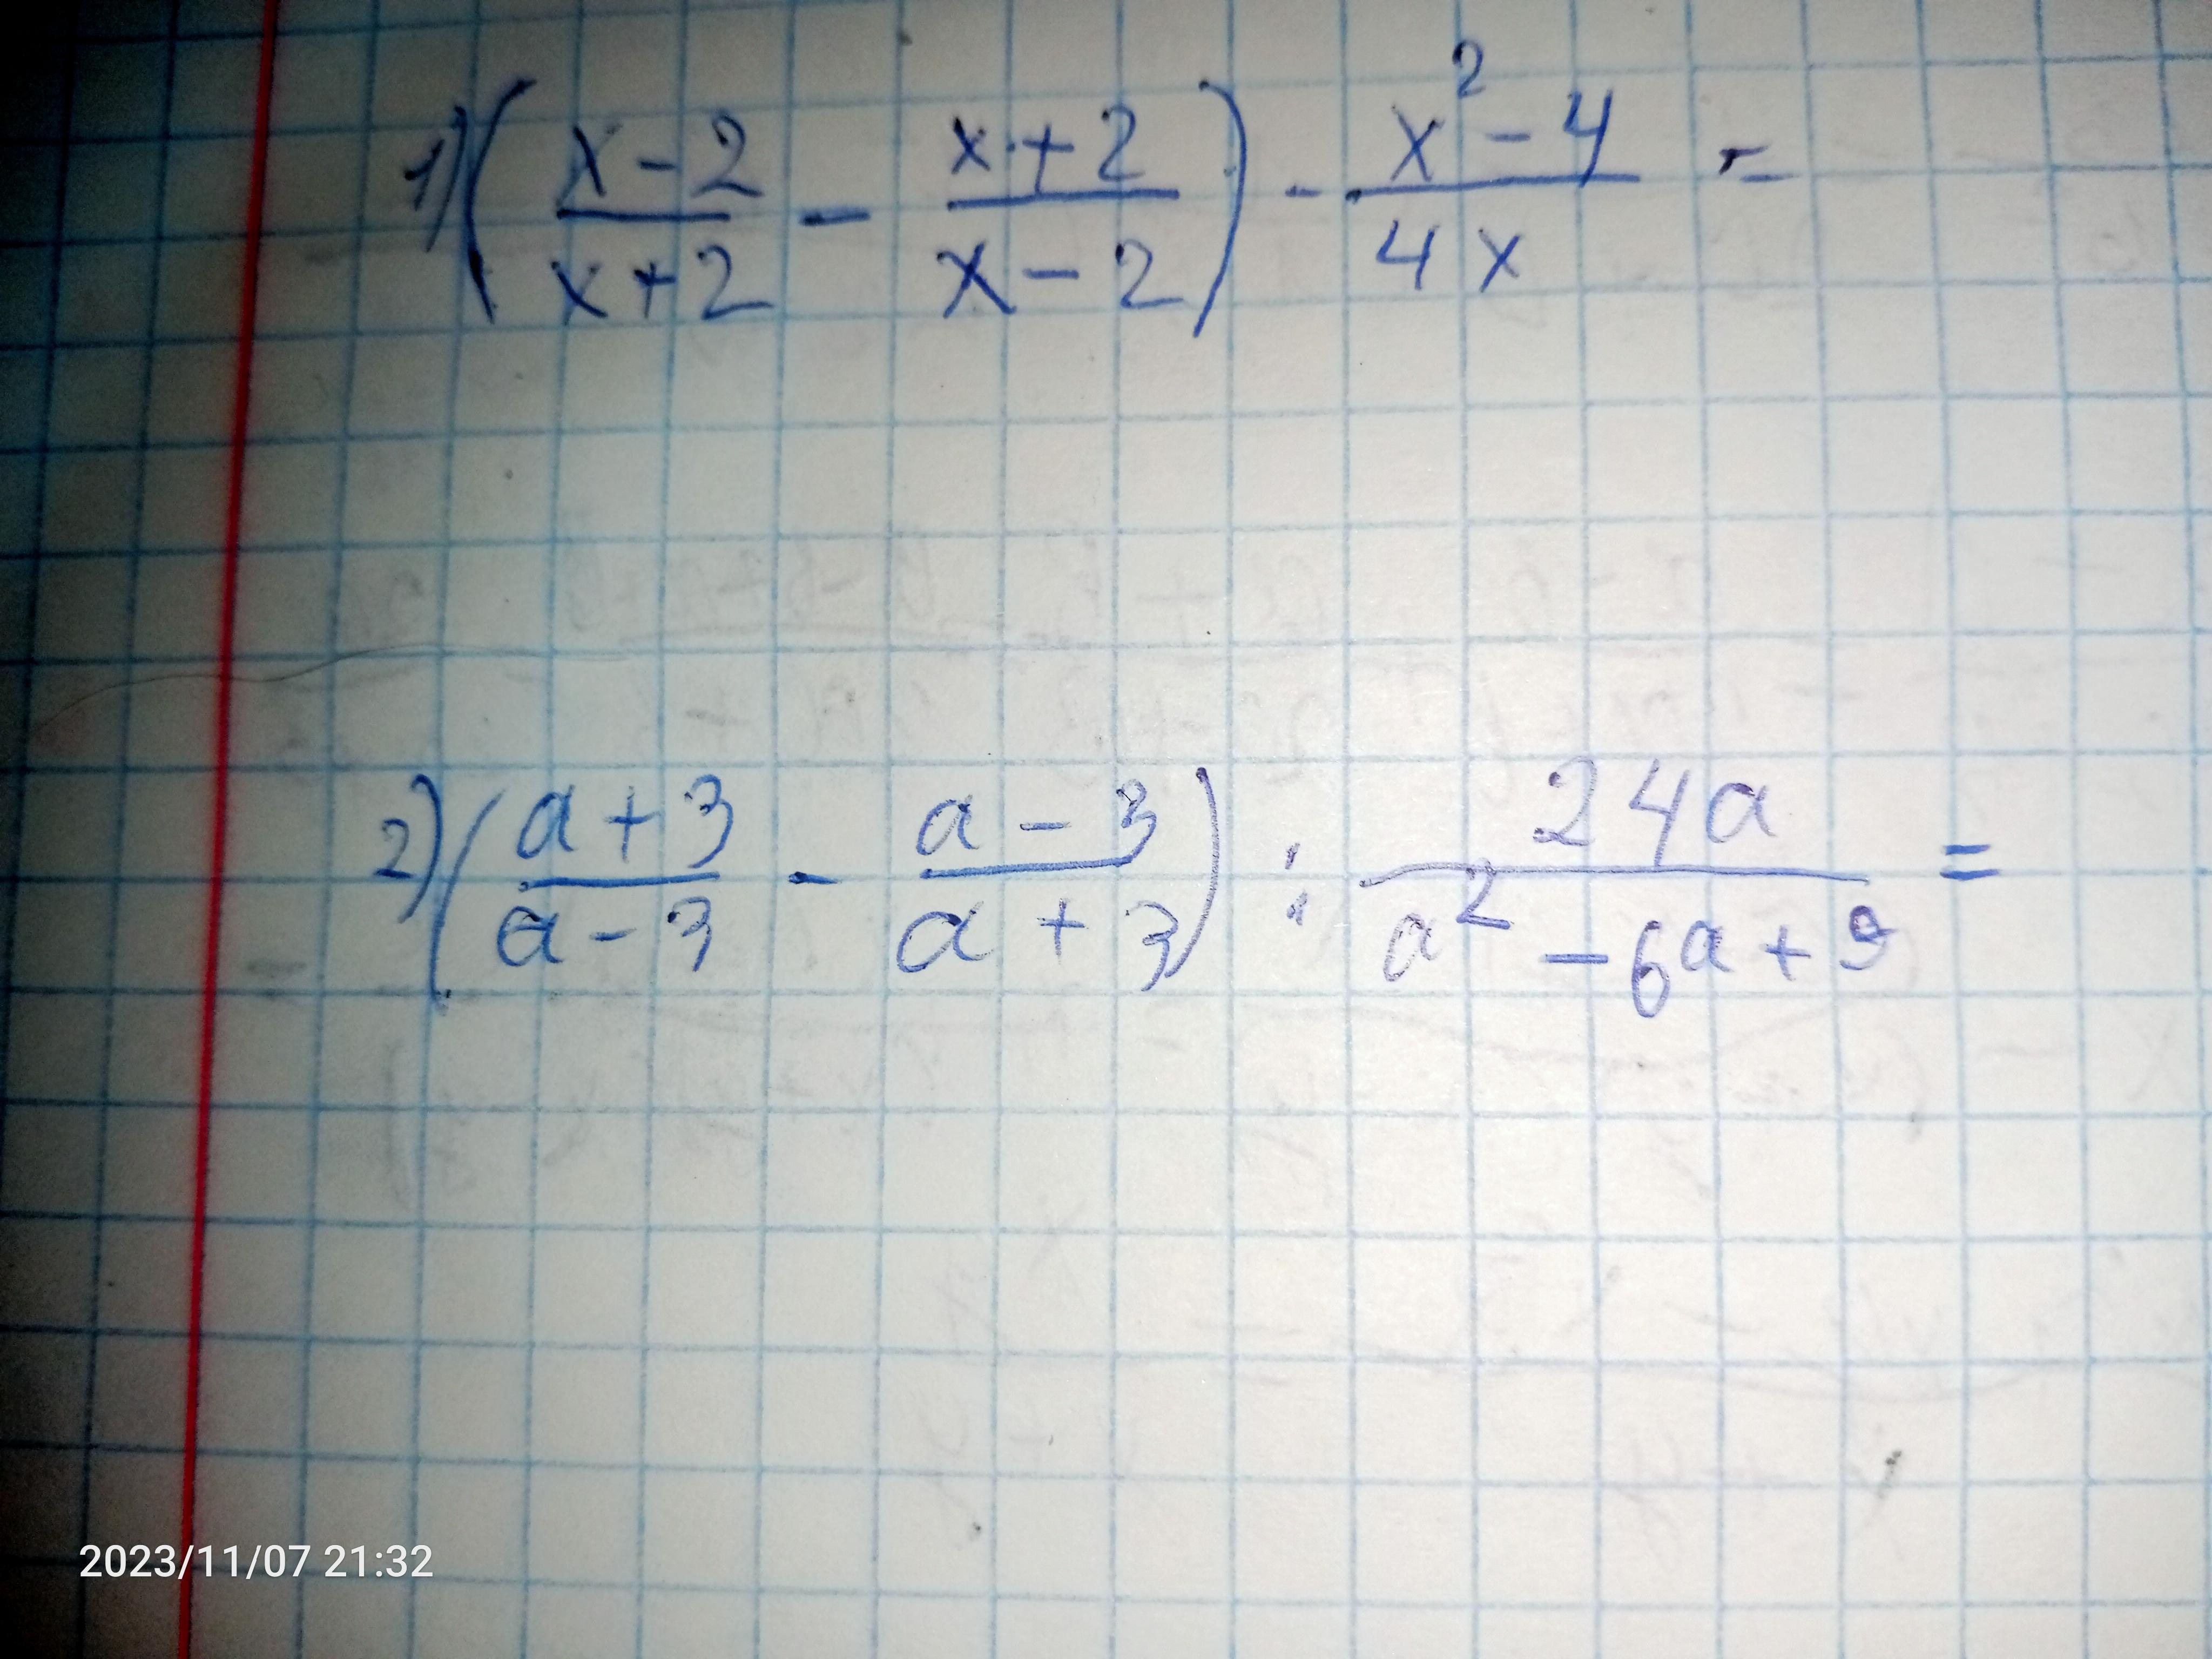 1) ( x-2/x+2 - x+2/x-2 ) · x²-4/4x =
2) ( a+3/a-3 - a-3/a+3 ) : 24a/a²-6a+9 =
2023/11/07 21:32